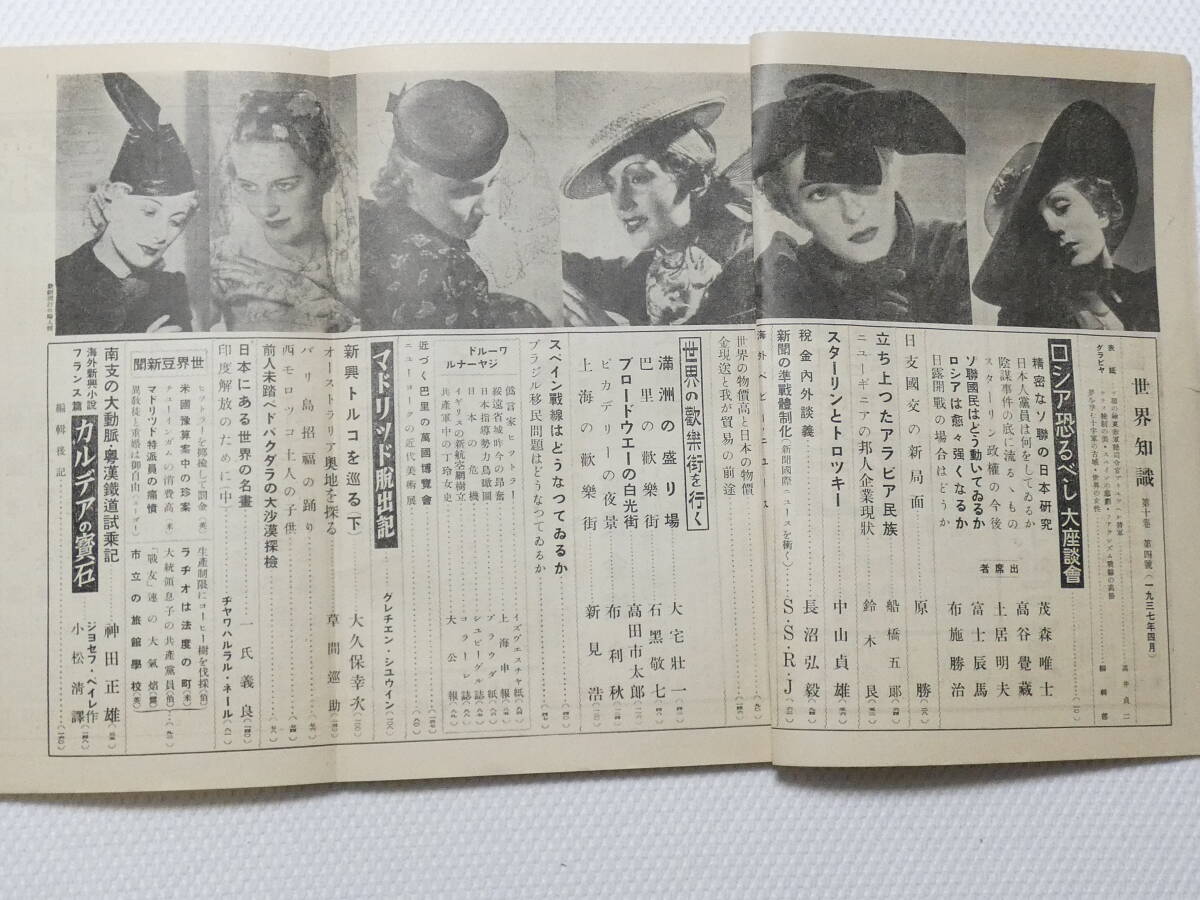 世界知識 第十卷 第四號（一九三七年四月）
表紙
高井貞二
グラビヤ
編輯部
ロシア恐るべし大座談會
精密なソ聯の日本研究
日本人黨員は何をしてゐるか
陰謀事件の底に流るゝもの
スターリン政權の今後
ソ聯國民はどう動いてゐるか
ロシアは愈々强くなるか
日露開戰の場合はどうか
出席者
茂森唯士
高谷覺藏
土居明夫
富士辰馬
布施勝治
日支國交の新局面 原勝
立ち上つたアラビア民族 船橋五郎
ニューギニアの邦人企業現狀 鈴木艮
スターリンとトロツキー 中山貞雄
稅金内外談義 長沼弘毅
新聞の準戰體制化（新聞國際ニュースを衝く） S・S・R・J
海外ベビーニュース
世界の物價高と日本の物價
金現送と我が貿易の前途
世界の歡樂街を行く
滿洲の盛り場 大宅壯一
巴里の歡樂街 石黑敬七
ブロードウエーの白光街 高田市太郎
ピカデリーの夜景 布利秋
上海の歡樂街 新見浩
スペイン戰線はどうなつてゐるか
ブラジル移民問題はどうなつてゐるか
ワールドジヤーナル
低言家ヒットラー イズヴエスチヤ紙
綏遠省城昨今の昂奮 上海申報
日本指導勢力鳥瞰圖 プラウダ紙
日本の危機 シユピーゲル誌
イギリスの新航空網樹立 コラーレ誌
共產軍中の丁玲女史 大公報
近づく巴里の萬國博覽會
ニューヨークの近代美術展
マドリッド脱出記 グレチエン・シユウイン
新興トルコを巡る（下） 大久保幸次
オーストラリア奥地を探る 草間巡助
バリ島招福の踊り
西モロツコ土人の子供
前人未踏ベドバクダラの大沙漠探檢
日本にある世界の名畫 一氏義良
印度解放のために（中） チヤワハルラル・ネール
世界豆新聞
ヒットラーを揶揄して罰金（英）
米國豫算案中の珍案
チユーインガムの消費高（米）
マドリッド特派員の痛憤
異敎徒と重婚は御自由
生産制限にコーヒー樹を伐採（伯）
ラヂオは法度の町（米）
大統領息子の共産黨員（伯）
「戰友」連の大氣焰
市立の旅館學校（英）
南支の大動脈・粤漢鐵道試乘記 神田正雄
海外新興小說
フランス篇
カルデアの寶石
ジョセフ・ペイレ作
小松淸譯
編輯後記